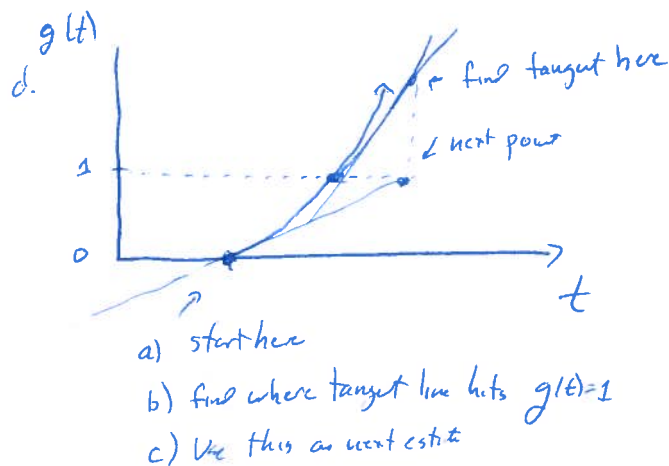 g(t)
d.
find tangent here
next point
1
0
t
a) start here
b) find where tangent line hits g(t)=1
c) Use this as next